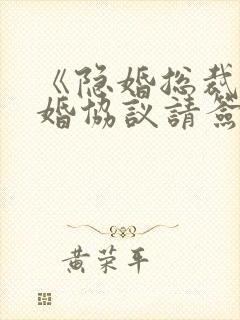 《隐婚总裁
婚协议请签
黄荣平